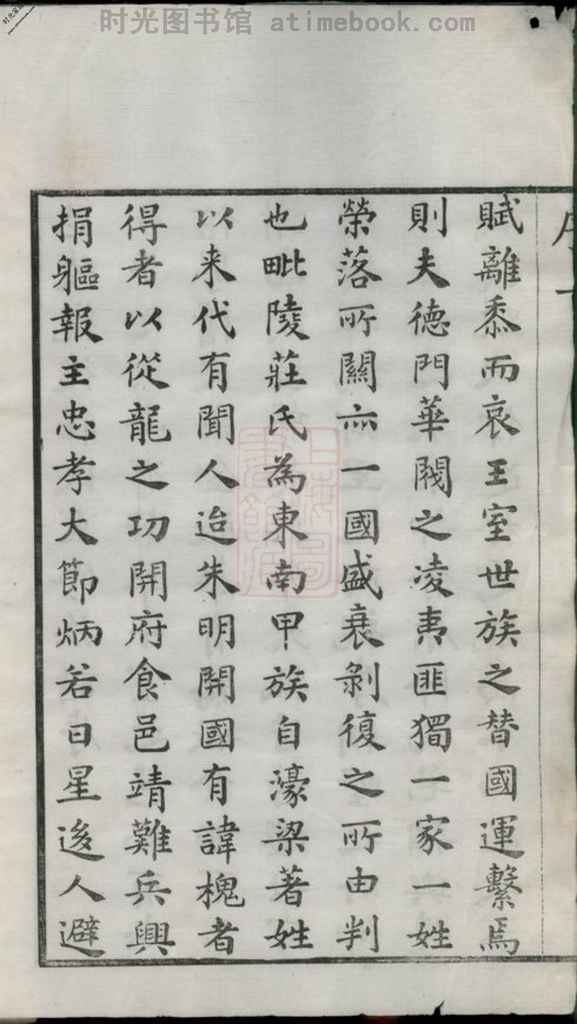 时光图书馆 atimebook.com
賦離黍而哀王室世族之替國運繫焉
則夫德門華閥之凌夷匪獨一家一姓
榮落所關亦一國盛衰剝復之所由判
也毗陵莊氏為東南甲族自濠梁著姓
以来代有聞人迨朱明開國有諱槐者
得者以從龍之功開府食邑靖難兵興
捐軀報主忠孝大節炳若日星後人避